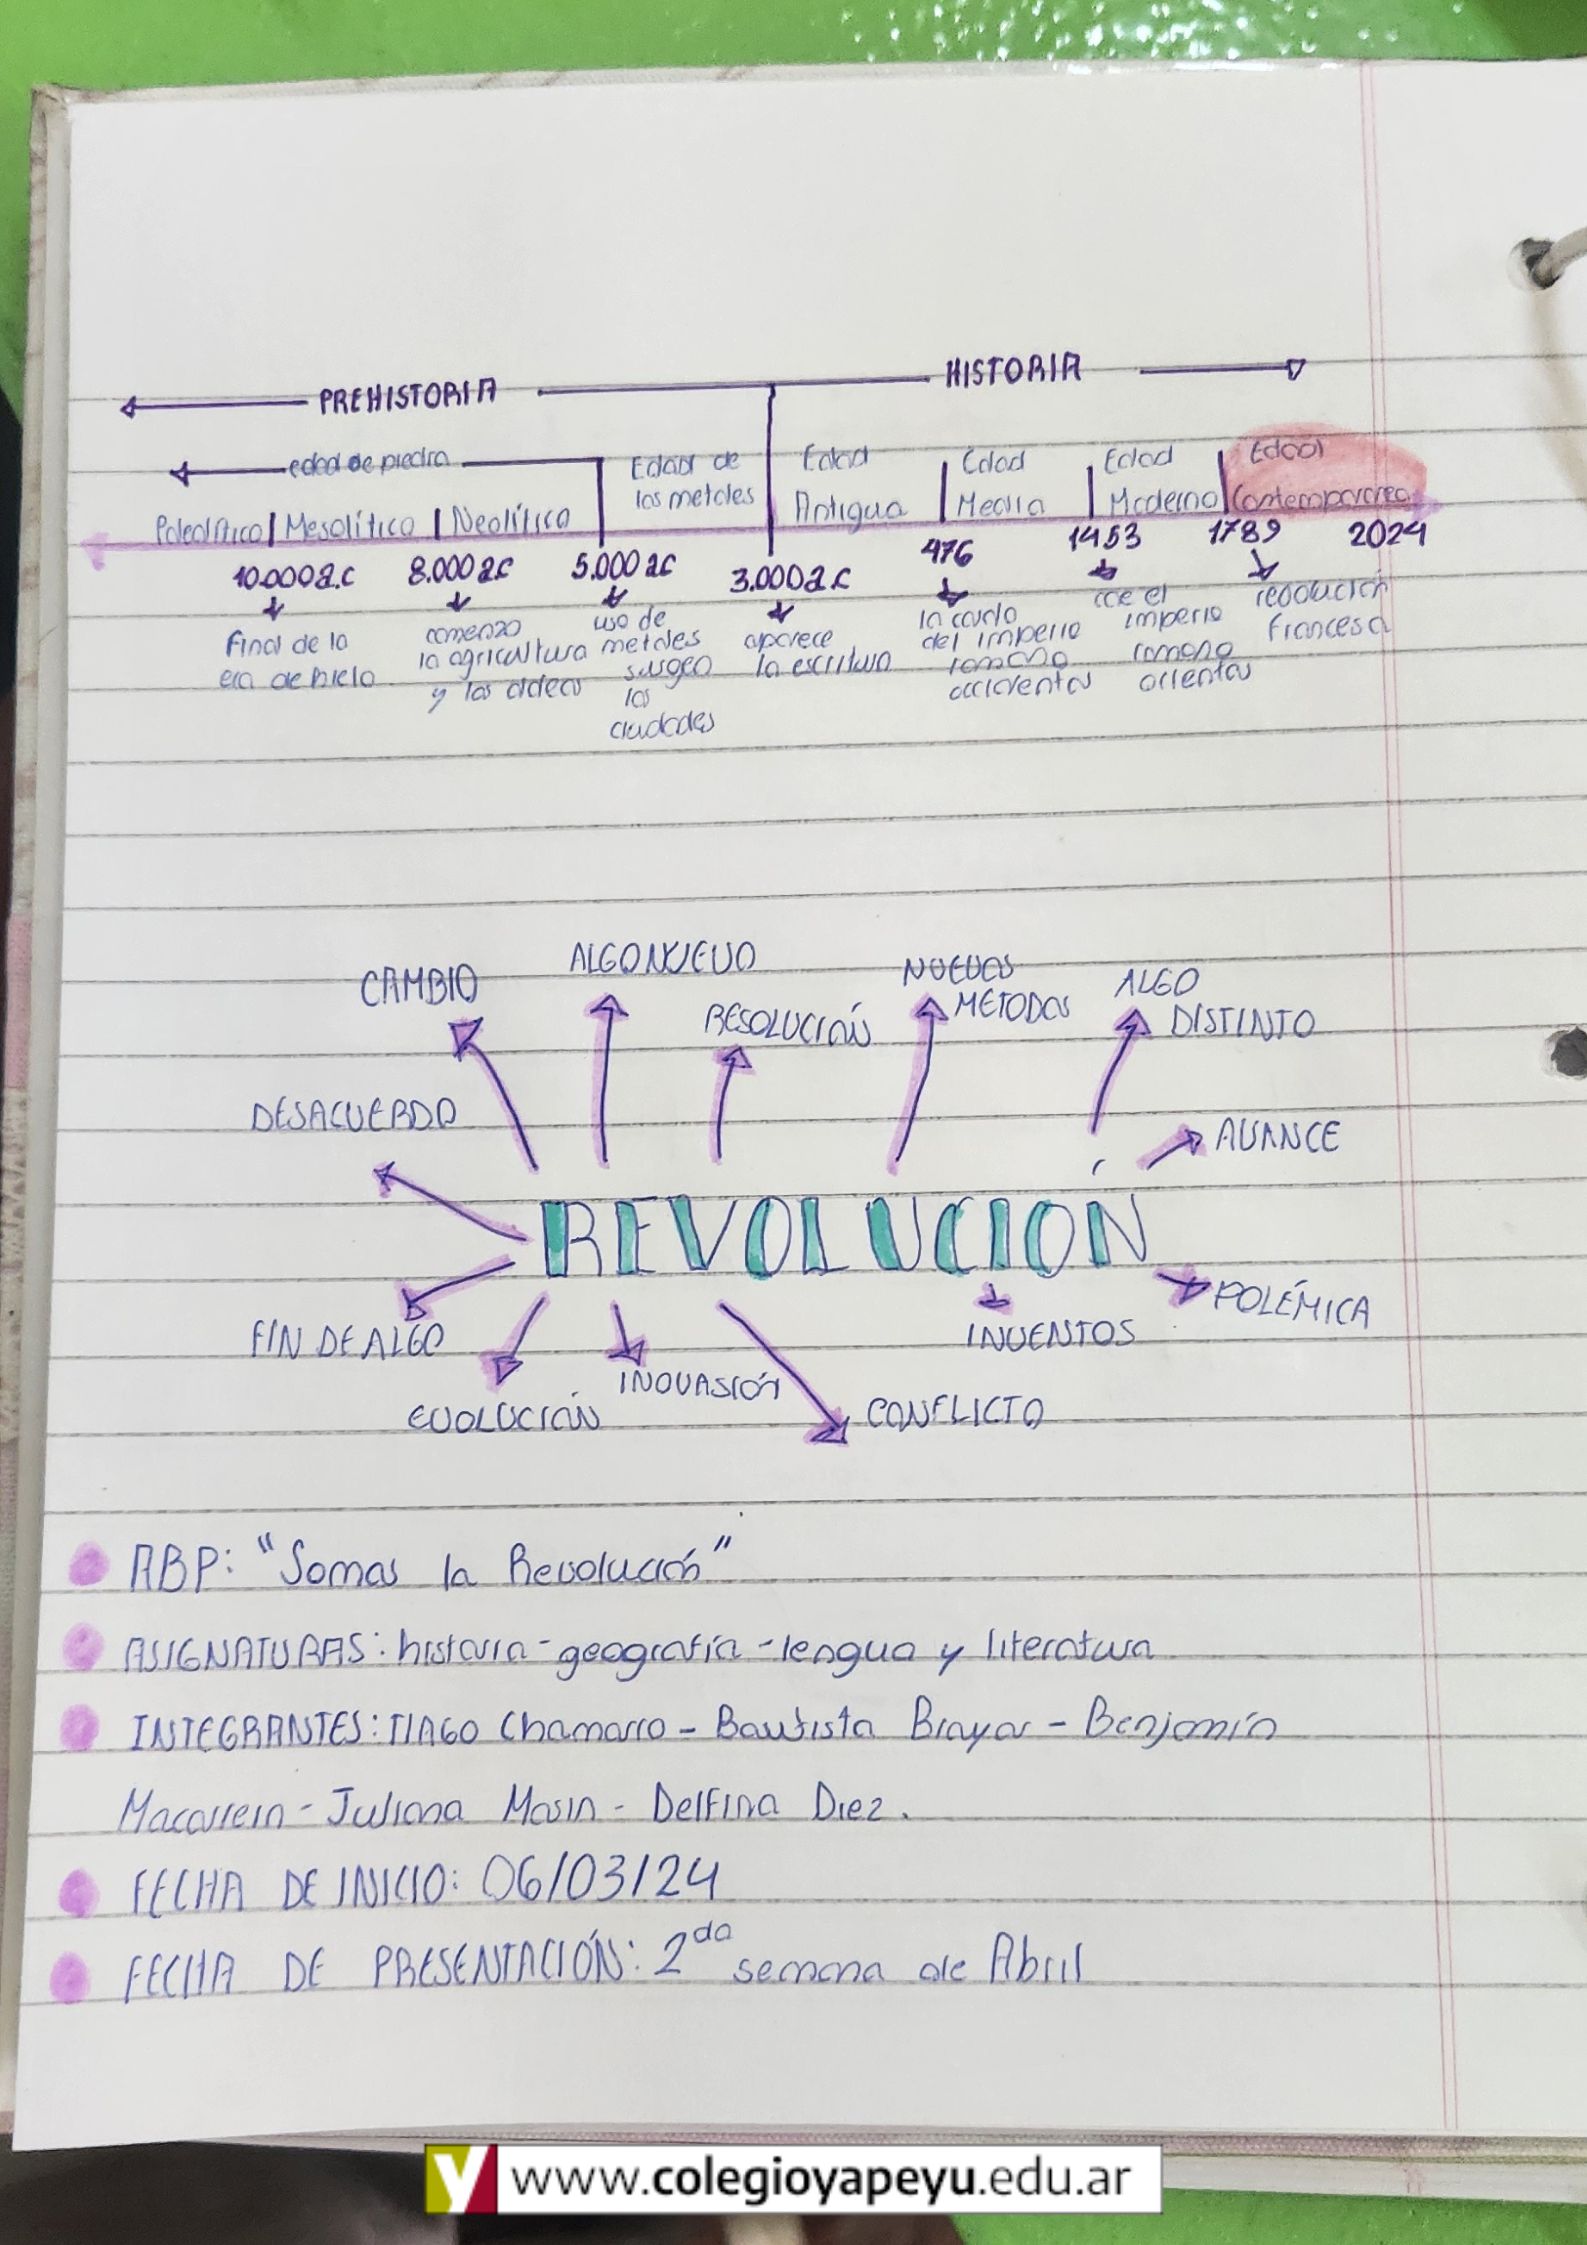 PREHISTORIA HISTORIA
edad de piedra
Edad de los metales
Edad Antigua
Edad Media
Edad Moderna
Edad Contemporanea
Paleolítico Mesolítico Neolítico
10.000 a.c 8.000 a.c 5.000 a.c 3.000 a.c 476 1453 1789 2024
final de la
era de hielo
comenzo
la agricultura
y las aldeas
uso de
metales
surgen
las
ciudades
aparece
la escritura
la caida
del imperio
romano
occidental
cae el
imperio
romano
oriental
revolución
francesa
CAMBIO
ALGO NUEVO
RESOLUCIÓN
NUEVOS
METODOS
ALGO
DISTINTO
DESACUERDO
AVANCE
REVOLUCIÓN
FIN DE ALGO
EVOLUCIÓN
INOVASIÓN
CONFLICTO
INVENTOS
POLÉMICA
ABP: "Somos la Revolución"
ASIGNATURAS: historia - geografía - lengua y literatura
INTEGRANTES: TIAGO Chamorro - Bautista Brayer - Benjamín
Macarrein - Juliana Masin - Delfina Diez.
FECHA DE INICIO: 06/03/24
FECHA DE PRESENTACIÓN: 2da semana de Abril
y www.colegioyapeyu.edu.ar